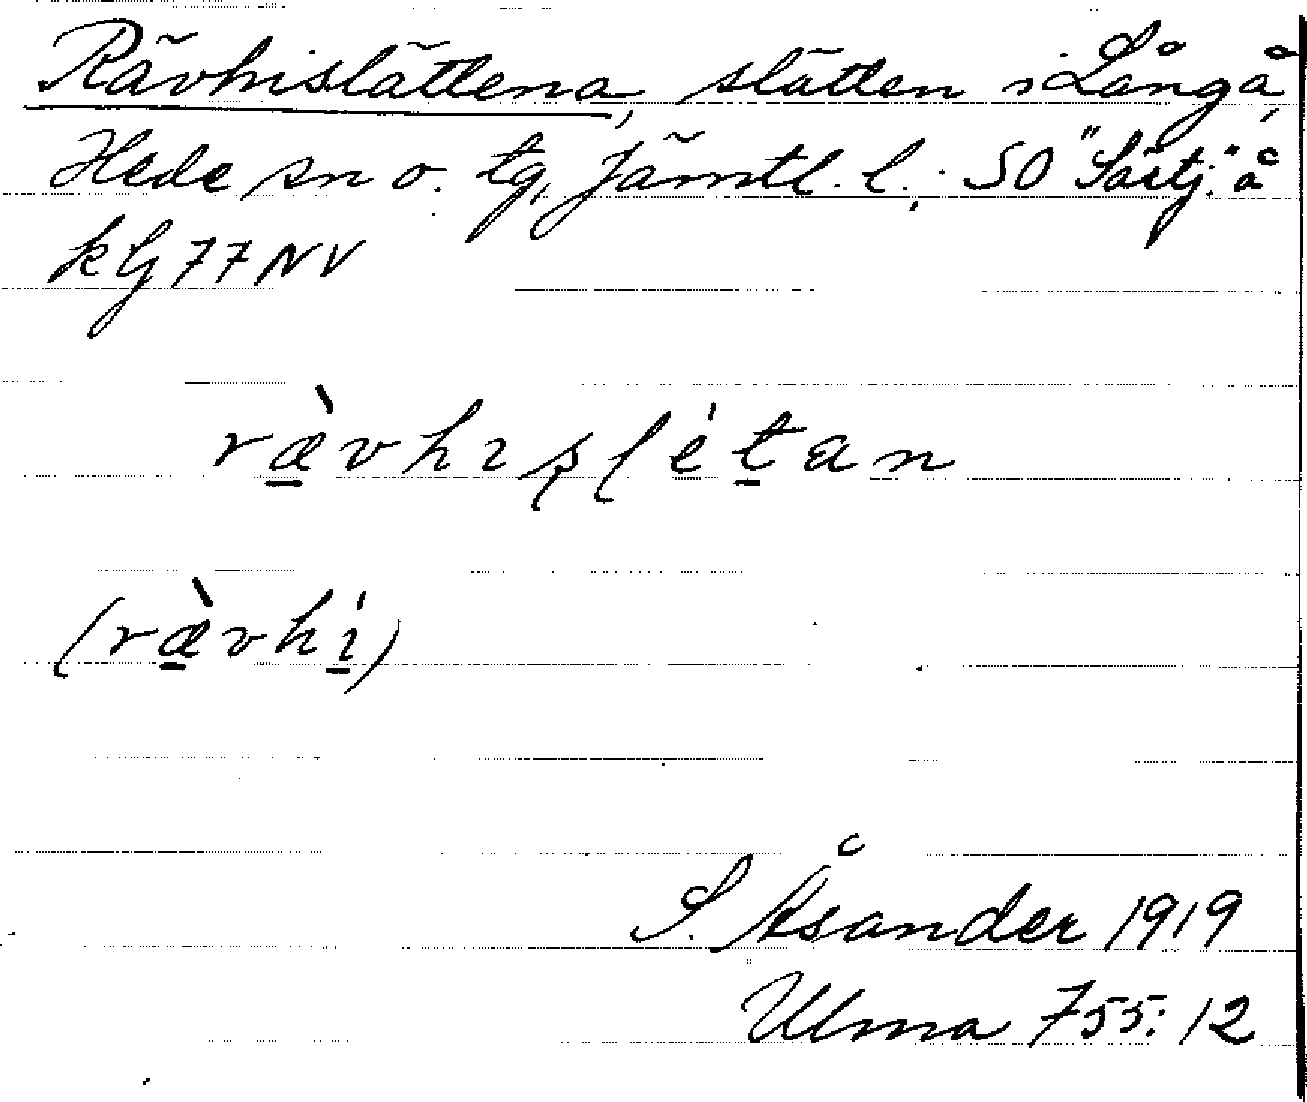 Rävhislättena, slåtten i Långå,
Hede sn o. tg, Jämtl. l.; SO "Särtj." å
kbl 77 NV
ræ̀vhɪsl̥étan
(ræ̀vhí)
S. Åsander 1919
Ulma 755:12